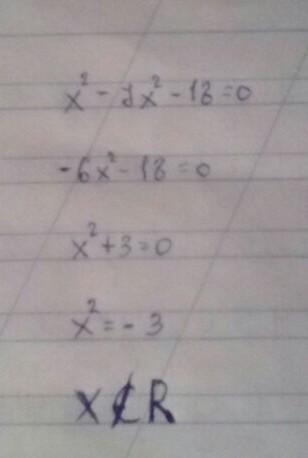 x² - 7x² - 18 = 0
-6x² - 18 = 0
x² + 3 = 0
x² = - 3
x ⊄ R